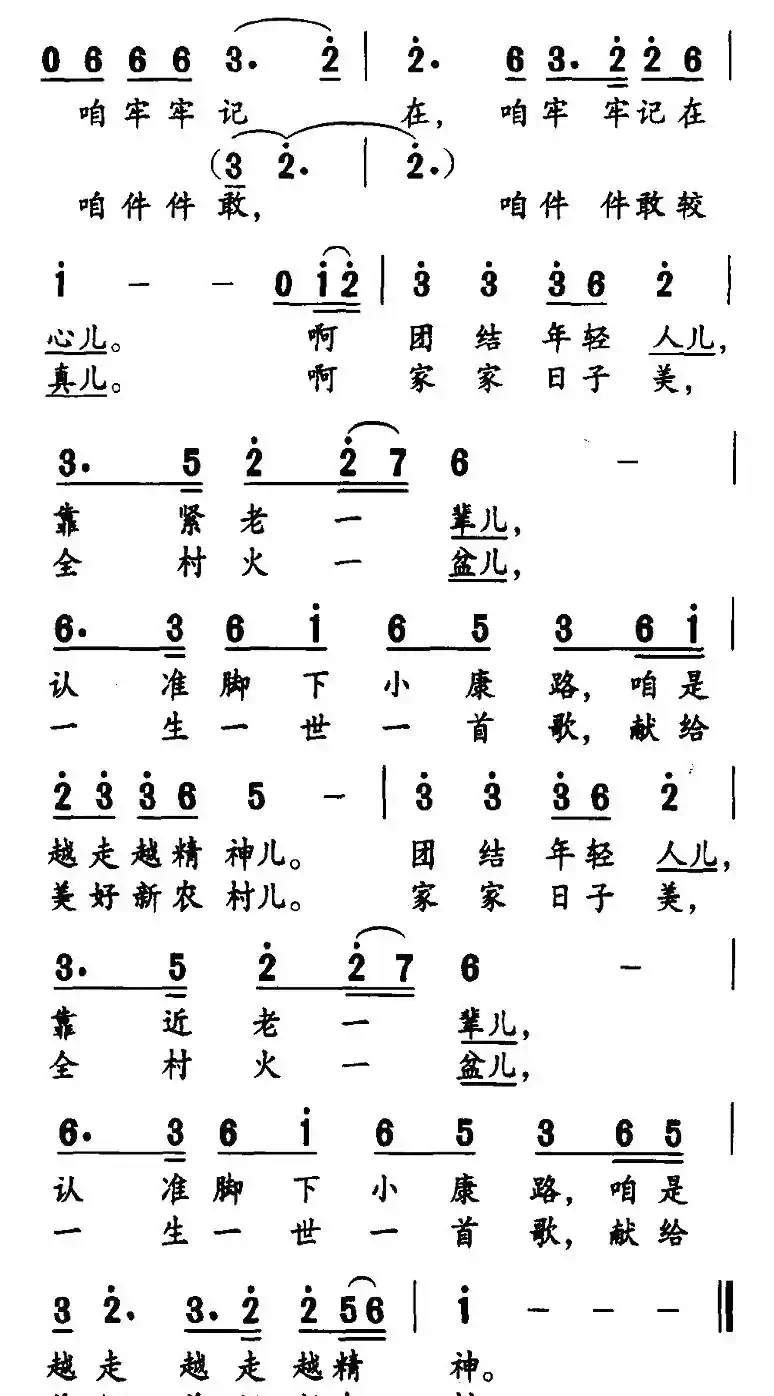 0 6 6 6 3. 2̇ | 2̇. 6 3. 2̇ 2̇ 6 |
咱牢牢记 在，咱牢 牢记在
(3 2̇. | 2̇.)
咱件件敢， 咱件 件敢较
1̇ - - 0 1̇ 2̇ | 3̇ 3̇ 3̇ 6 2̇ |
心儿。 啊 团 结 年轻 人儿，
真儿。 啊 家 家 日子 美，
3. 5 2̇ 2̇ 7 6 - |
靠 紧 老 一 辈儿，
全 村 火 一 盆儿，
6. 3 6 1̇ 6 5 3 6 1̇ |
认 准 脚 下 小 康 路，咱是
一 生 一 世 一 首 歌，献给
2̇ 3̇ 3̇ 6 5 - | 3̇ 3̇ 3̇ 6 2̇ |
越走越精 神儿。 团 结 年轻 人儿，
美好新农 村儿。 家 家 日子 美，
3. 5̇ 2̇ 2̇ 7 6 - |
靠 近 老 一 辈儿，
全 村 火 一 盆儿，
6. 3 6 1̇ 6 5 3 6 5 |
认 准 脚 下 小 康 路，咱是
一 生 一 世 一 首 歌，献给
3 2̇. 3. 2̇ 2̇ 5 6 | 1̇ - - - ‖
越走 越走越精 神。